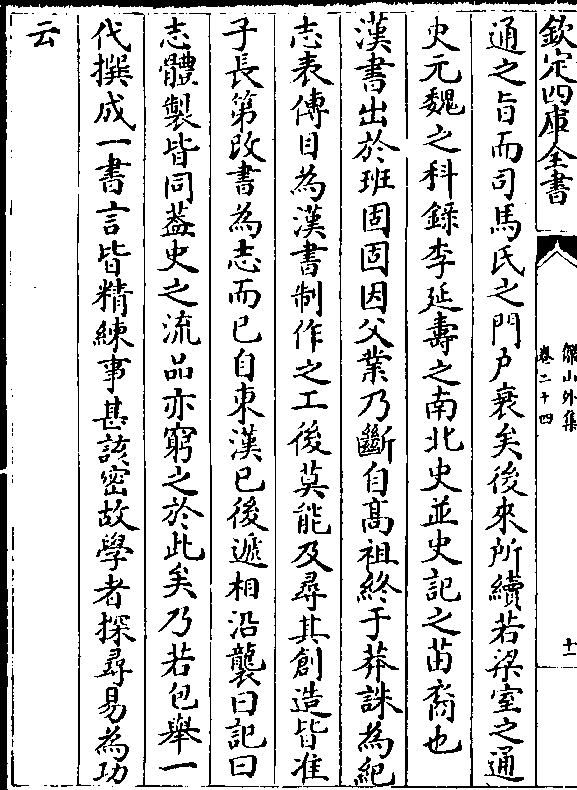 欽定四庫全書
儼山外集
卷二十四
十一
通之旨而司馬氏之門户衰矣後來所續若梁室之通
史元魏之科錄李延壽之南北史並史記之苗裔也
漢書出於班固固因父業乃斷自髙祖終于莽誅為紀
志表傳目為漢書制作之工後莫能及尋其創造皆准
子長第改書為志而已自東漢已後遞相沿襲曰記曰
志體製皆同葢史之流品亦窮之於此矣乃若包舉一
代撰成一書言皆精練事甚該密故學者探尋易為功
云